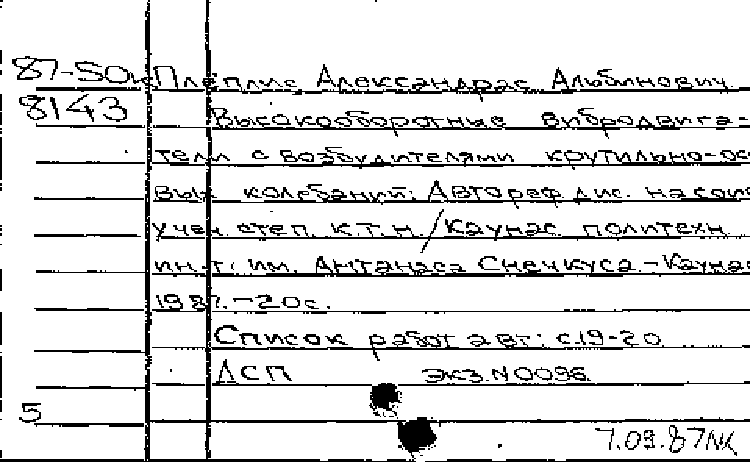 87-50к Плеплис Александрас Альбинович
8143 Высокооборотные вибродвига-
тели с возбудителями крутильно-ос
вых колебаний: Автореф дис. на соис
учен. степ. к.т.н. / Каунас. политехн
ин-т. им. Антанаса Снечкуса. - Каунас
1987. - 20с.
Список работ авт: с.19-20
ДСП экз. N0096
5
7.09.87